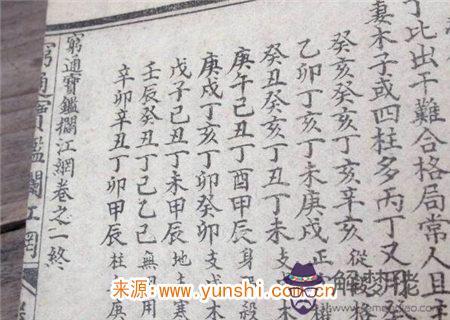 丁比出干難合格局常人且主
妻木子或四柱多丙丁又
癸亥癸亥丁亥辛亥 從
乙卯丁亥丁未庚戌 正
癸丑癸亥丁 支
庚午己丑丁酉甲辰 身
庚戌丁亥 癸卯 支成木
戊子己丑丁未甲辰 地支
壬辰癸丑丁巳乙巳 無用
辛卯辛丑丁卯甲辰 柱
窮通寶鑑攔江網卷之一終
窮通寶鑑攔江網
来源:www.yunshi.com.cn
解梦佬